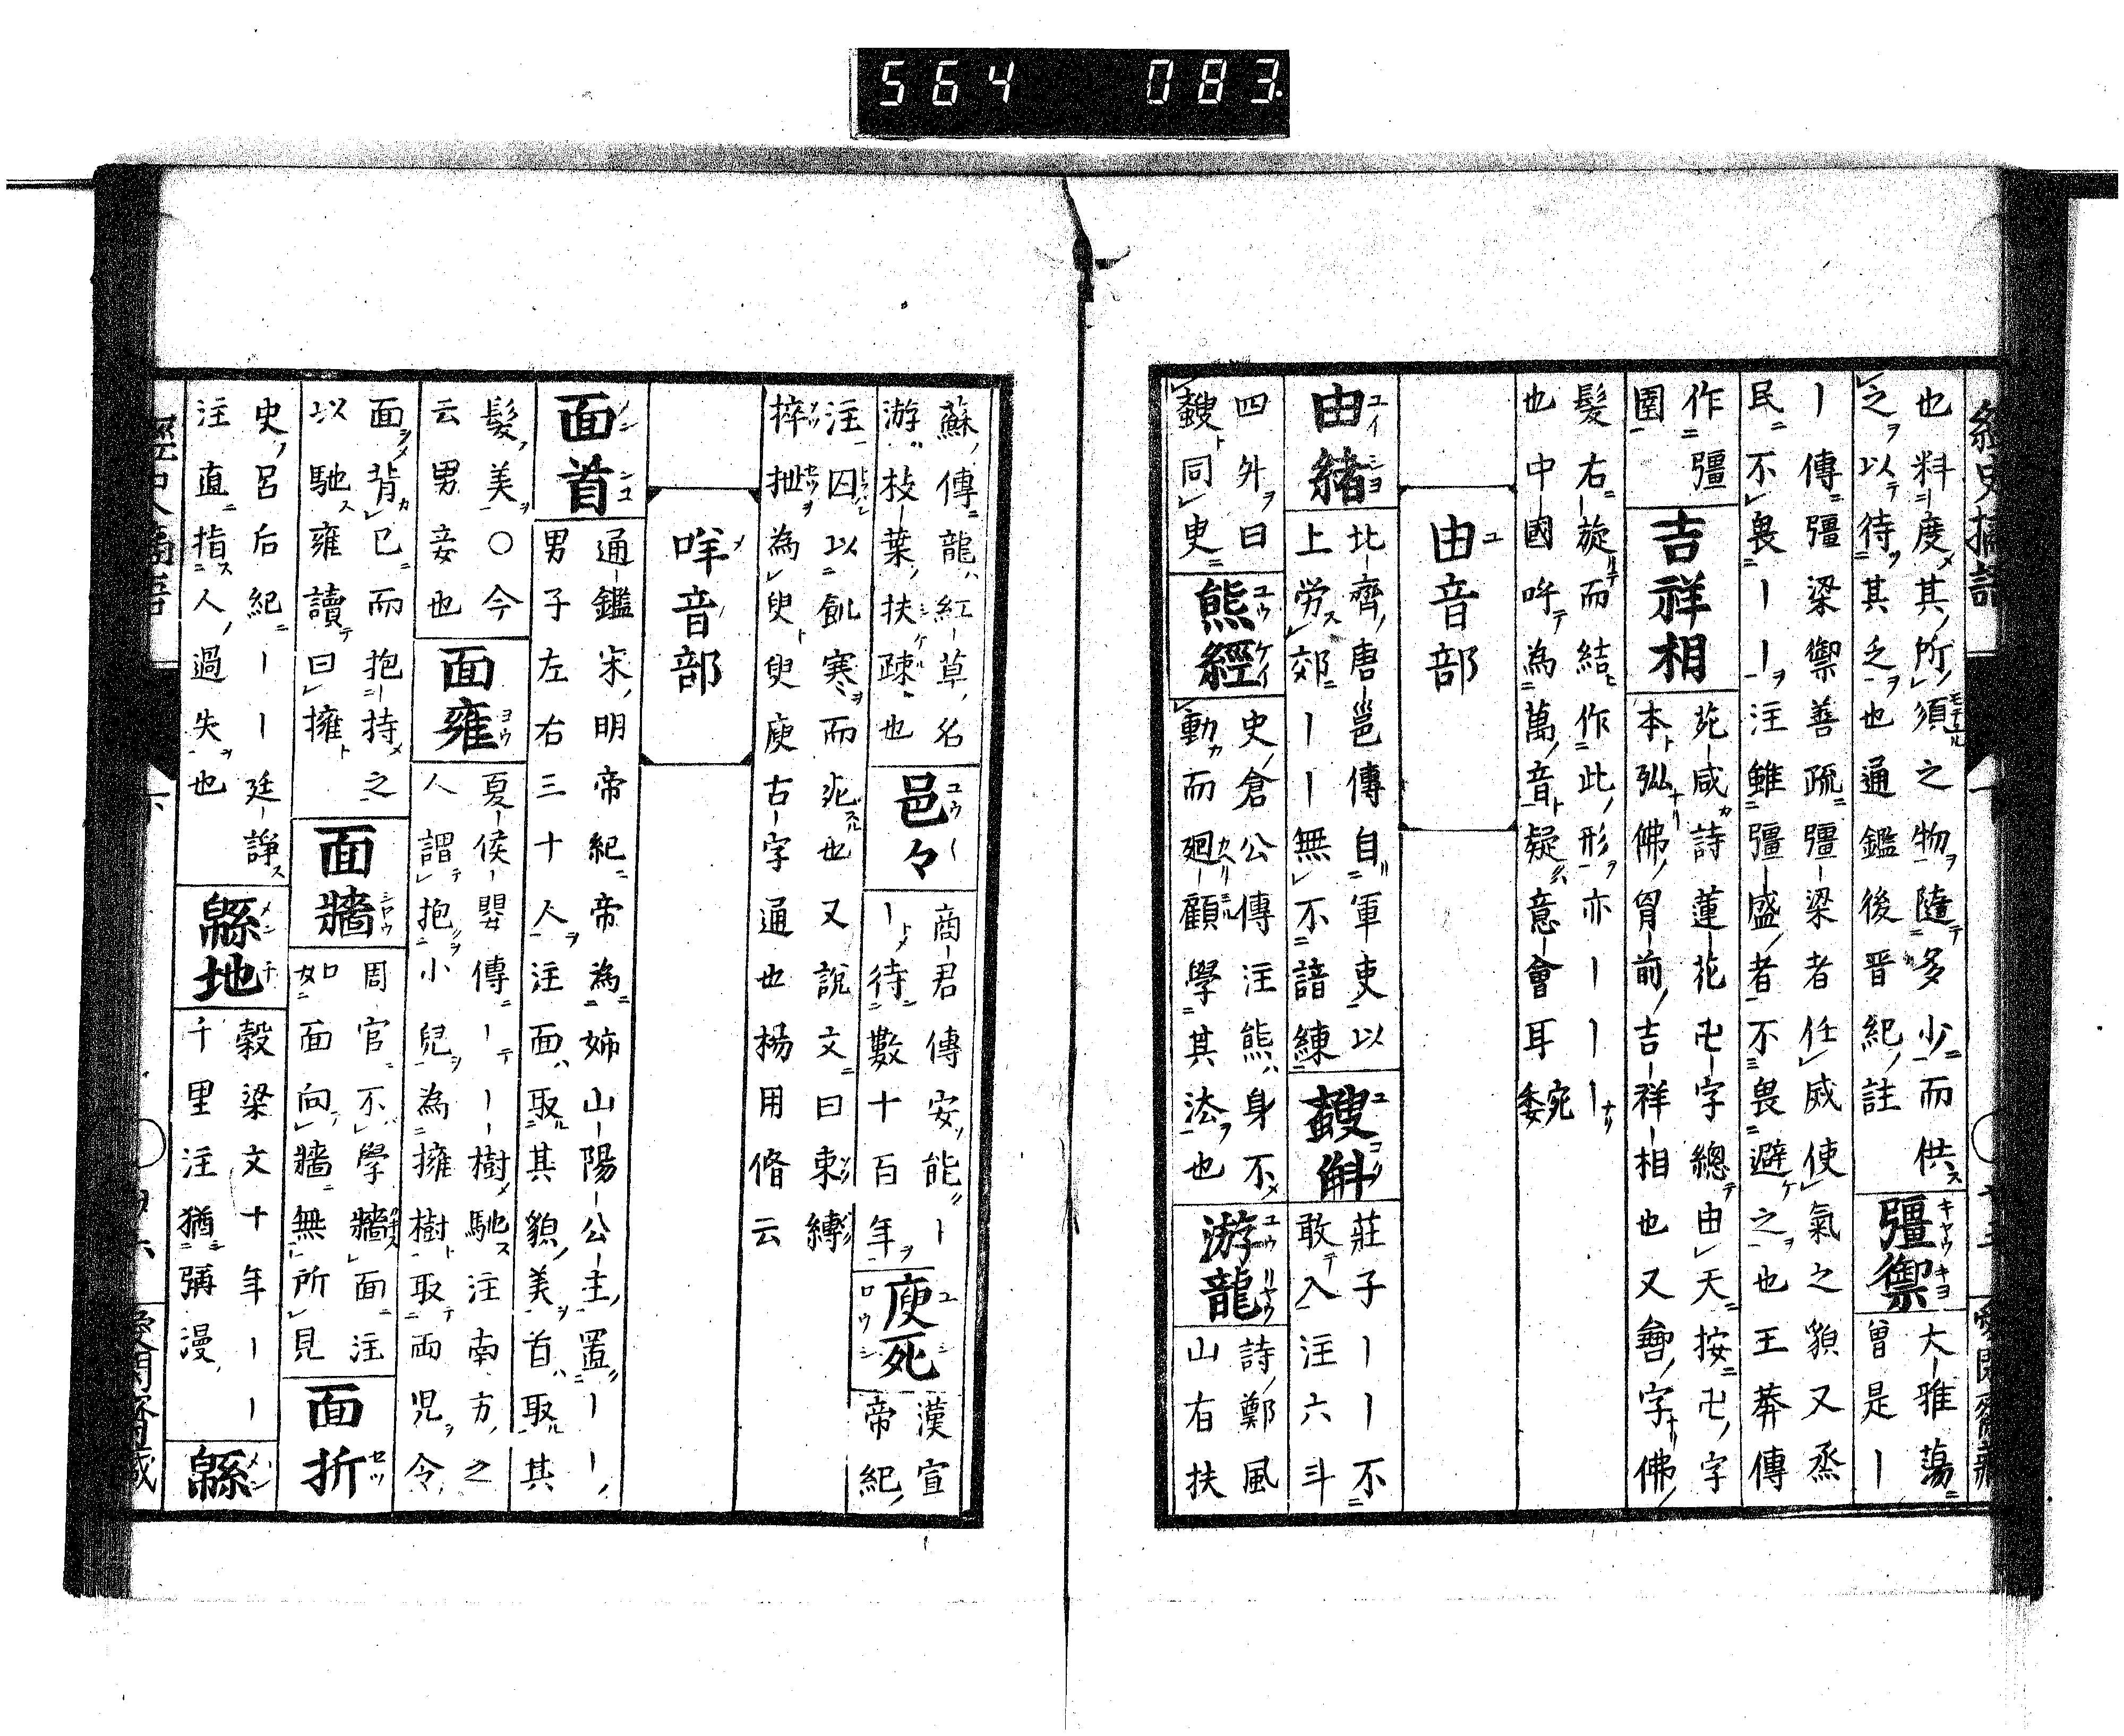 564 083
也料度其所須之物隨多少而供
之以待其乏也通鑑後晋紀註
彊禦
キヤウキヨ
大雅蕩
曾是ー
ー傳彊梁禦善疏彊梁者任威使氣之貌又烝
民不畏ーー注雖彊盛者不畏避之也王莽傳
作彊
圉
吉祥相
苑咸詩蓮花卍字總由天按卍字
本弘佛胷前吉祥相也又畨字佛
髮右旋而結作此形亦ーー
也中國呼為萬音疑意會耳
由音部
ユ
由緒
ユイシヨ
北齊唐邕傳自軍吏以
上労郊ーー無不諳練
斞
莊子ーー不
敢入注六斗
四外曰
同
熊經
ユウケイ
史倉公傳注熊身不
動而廻顧學其法也
游龍
ユウリヤウ
詩鄭風
山有扶
蘇傳龍紅草名
游枝葉扶疎也
邑々
ユウー
商君傳安能ー
ー待數十百年
庾死
漢宣
帝紀
注囚以飢寒而死也又說文曰束縛
捽抴為臾臾庾古字通也楊用脩云
咩音部
メ
面首
メンシユ
通鑑宋明帝紀帝為姉山陽公主置ーー
男子左右三十人注面取其貌美首取其
髮美○今
云男妾也
面雍
ヨウ
夏侯嬰傳ーー樹馳注南方之
人謂抱小兒為擁樹取両児令
面背已而抱持之
以馳雍讀曰擁
面牆
シヨウ
周官不學牆面注
如面向牆無所見
面折
セツ
史呂后紀ーー廷諍
注直指人過失也
緜地
メンチ
穀梁文十年ーー
千里注猶彌漫
緜
メン